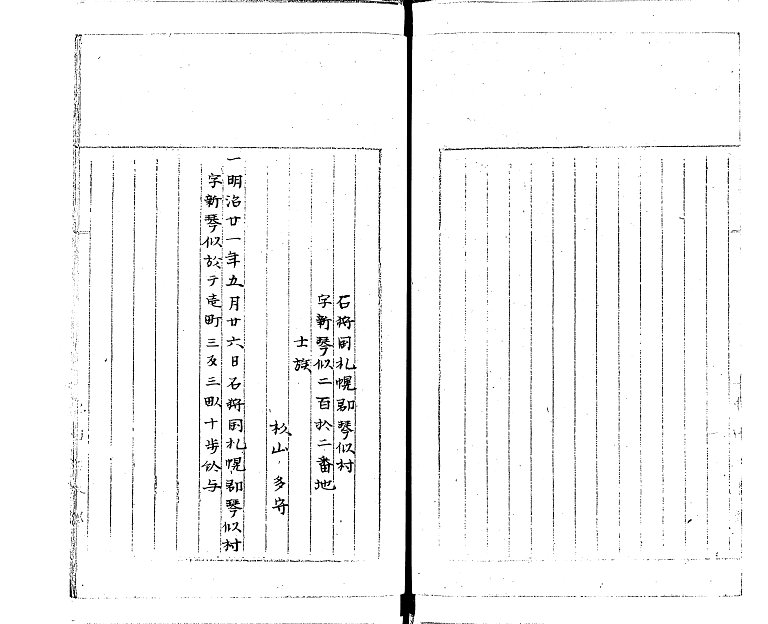 石狩国札幌郡琴似村
字新琴似二百拾二番地
士族
杉山 多守
一明治廿一年五月廿六日石狩国札幌郡琴似村
字新琴似於テ壱町三反三畝十歩給与